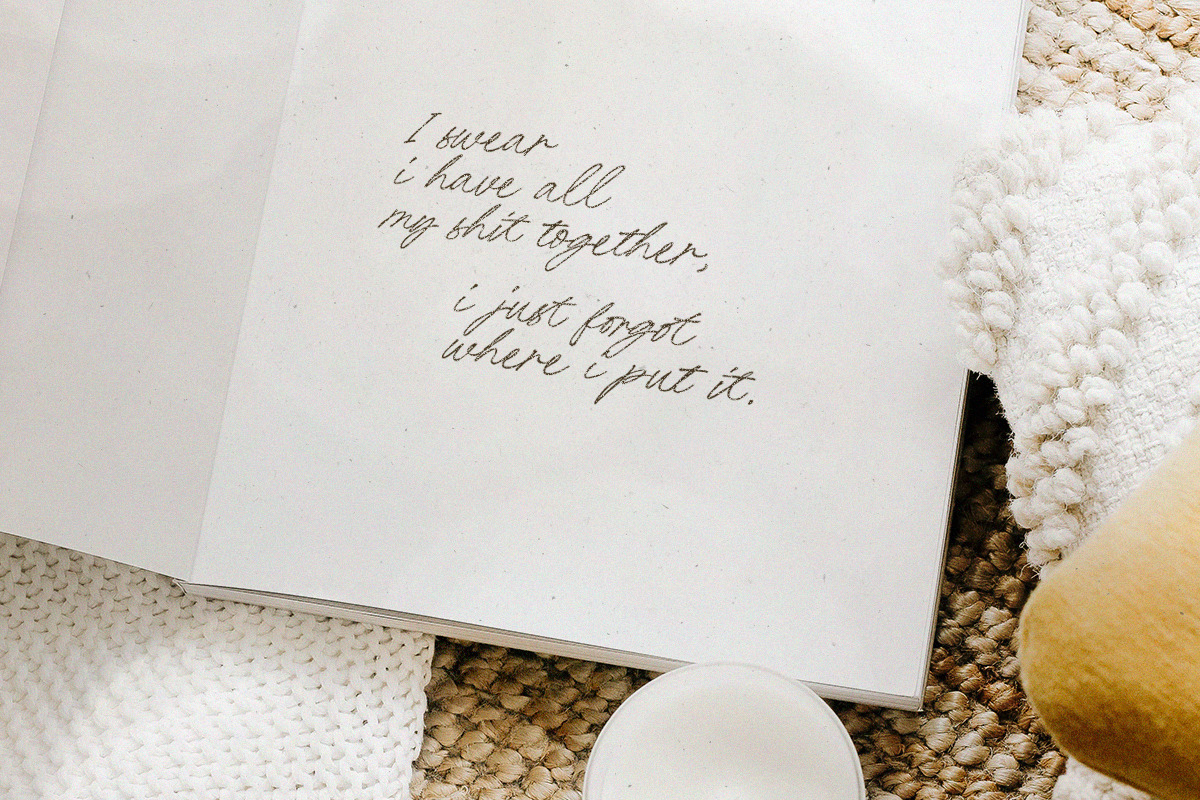 I swear
i have all
my shit together,
i just forgot
where i put it.